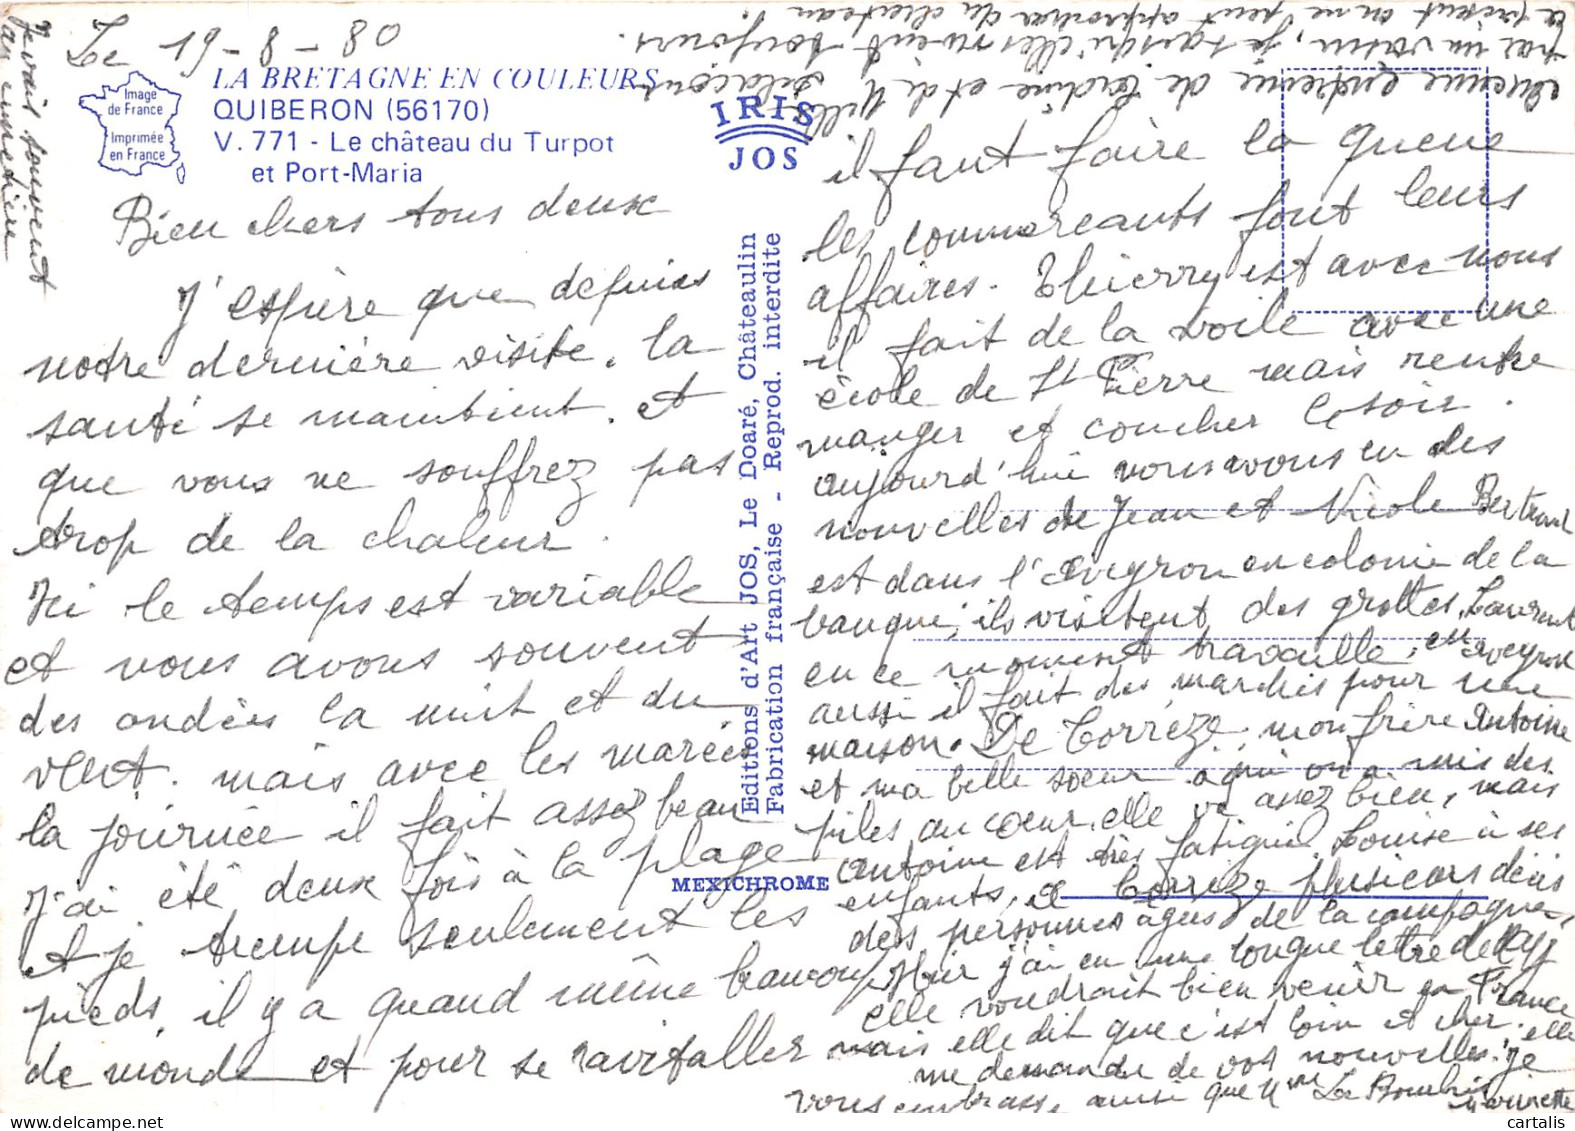 Le 19-8-80
Image
de France
Imprimée
en France
LA BRETAGNE EN COULEURS
QUIBERON (56170)
V. 771 - Le château du Turpot
et Port-Maria
IRIS
JOS
Bien chers tous deux
J'espère que depuis
notre dernière visite, la
santé se maintient, et
que vous ne souffrez pas
trop de la chaleur.
Ici le temps est variable
et nous avons souvent
des ondées la nuit et du
vent. mais avec les marées
la journée il fait assez beau
J'ai été deux fois à la plage
et je trempe seulement les
pieds, il y a quand même beaucoup
de monde et pour se ravitailler
Editions d'Art JOS, Le Doaré, Châteaulin
Fabrication française - Reprod. interdite
MEXICHROME
il faut faire la queue
les commercants font leurs
affaires. Thierry est avec nous
il fait de la voile avec une
école de St Pierre mais rentre
manger et coucher le soir.
aujourd'hui nous avons eu des
nouvelles de Jean et Nicole Bertrand
est dans l'aveyron en colonie de la
banque, ils visitent des grottes, Laurent
en ce moment travaille, en aveyron
aussi il fait des marchés pour une
maison. De Corrèze, mon frère Antoine
et ma belle soeur à qui on a mis des
piles au coeur, elle va assez bien, mais
Antoine est très fatigué Louise à ses
enfants, à Corrèze plusieurs décès
des personnes âgées de la campagne,
Hier j'ai eu une longue lettre de
elle voudrait bien venir en France
mais elle dit que c'est loin et cher. elle
me demande de vos nouvelles. Je
vous embrasse ainsi que Mme Le
Marinette
Je vais souvent
au cimetière
entretenue de Lordine et de
par un voisin, je tandis qu'elles rient toujours.
à présent on ne peut approcher du chateau